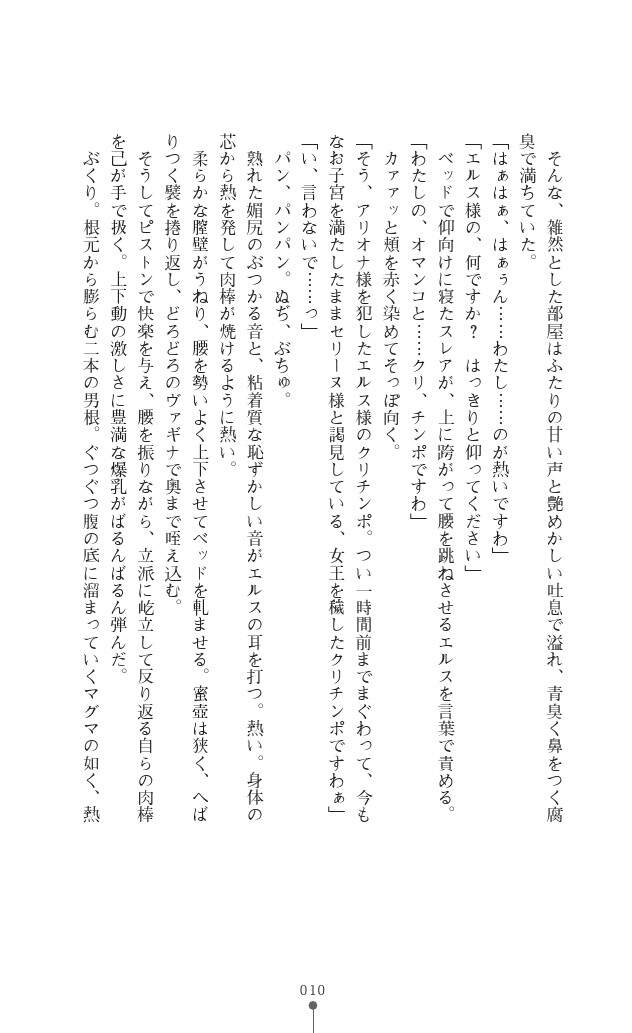 そんな、雑然とした部屋はふたりの甘い声と艶めかしい吐息で溢れ、青臭く鼻をつく腐
臭で満ちていた。
「はぁはぁ、はぁぅん……わたし……のが熱いですわ」
「エルス様の、何ですか？　はっきりと仰ってください」
ベッドで仰向けに寝たスレアが、上に跨がって腰を跳ねさせるエルスを言葉で責める。
「わたしの、オマンコと……クリ、チンポですわ」
カァァッと頬を赤く染めてそっぽ向く。
「そう、アリオナ様を犯したエルス様のクリチンポ。つい一時間前までまぐわって、今も
なお子宮を満たしたままセリーヌ様と謁見している、女王を穢したクリチンポですわぁ」
「い、言わないで……っ」
パン、パンパン。ぬぢ、ぶちゅ。
熟れた媚尻のぶつかる音と、粘着質な恥ずかしい音がエルスの耳を打つ。熱い。身体の
芯から熱を発して肉棒が焼けるように熱い。
柔らかな膣壁がうねり、腰を勢いよく上下させてベッドを軋ませる。蜜壺は狭く、へば
りつく襞を捲り返し、どろどろのヴァギナで奥まで咥え込む。
そうしてピストンで快楽を与え、腰を振りながら、立派に屹立して反り返る自らの肉棒
を己が手で扱く。上下動の激しさに豊満な爆乳がばるんばるん弾んだ。
ぷくり。根元から膨らむ二本の男根。ぐつぐつ腹の底に溜まっていくマグマの如く、熱
010